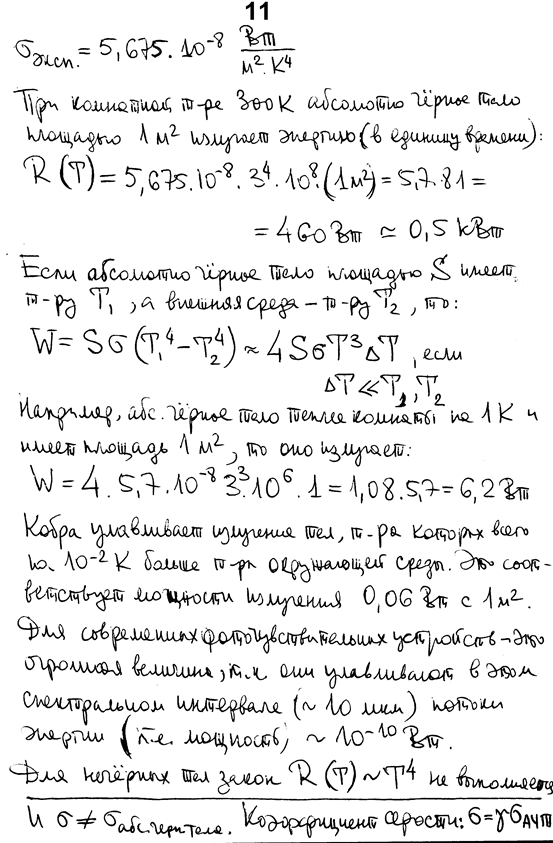 11
σэксп. = 5,675·10⁻⁸ Вт / м²·К⁴
При комнатной т-ре 300К абсолютно чёрное тело
площадью 1 м² излучает энергию (в единицу времени):
R(T) = 5,675·10⁻⁸·3⁴·10⁸·(1м²) = 5,7·81 =
= 460 Вт ≃ 0,5 кВт
Если абсолютно чёрное тело площадью S имеет
т-ру T₁, а внешняя среда – т-ру T₂, то:
W = Sσ(T₁⁴ − T₂⁴) ≈ 4SσT³ΔT, если
ΔT ≪ T₁,T₂
Например, абс. чёрное тело теплее комнаты на 1К и
имеет площадь 1 м², то оно излучает:
W = 4·5,7·10⁻⁸·3³·10⁶·1 = 1,08·5,7 = 6,2 Вт
Кобра улавливает излучение тел, т-ра которых всего
10⁻² К больше т-ры окружающей среды. Это соот-
ветствует мощности излучения 0,06 Вт с 1м².
Для современных фоточувствительных устройств – это
огромная величина, т.к они улавливают в этом
спектральном интервале (~ 10 мкм) потоки
энергии (т.е. мощность) ~ 10⁻¹⁰ Вт.
Для нечёрных тел закон R(T) ~ T⁴ не выполняется
и σ ≠ σабс.черн.тела. Коэффициент серости: σ = γσАЧТ